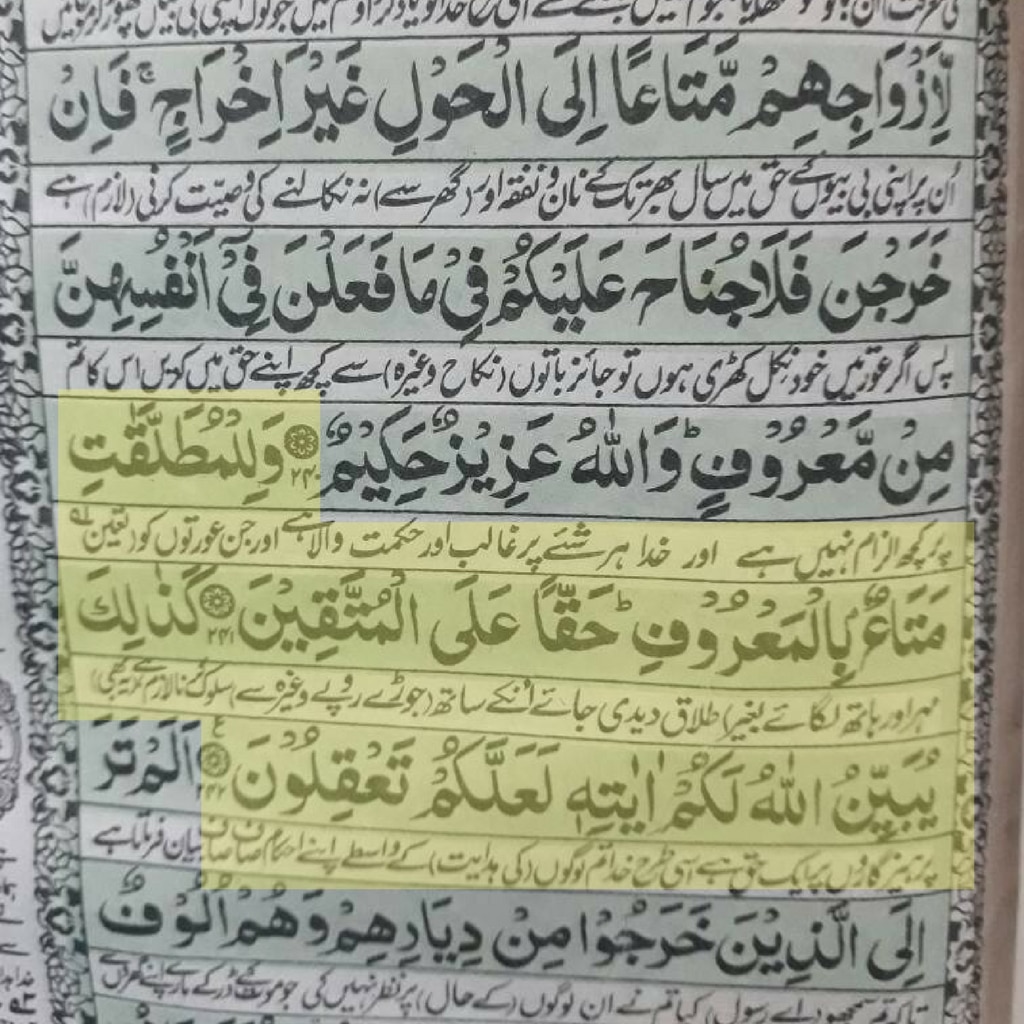 لِّاَزْوَاجِهِمْ مَّتَاعًا اِلَى الْحَوْلِ غَيْرَ اِخْرَاجٍ ۚ فَاِنْ
اُن پر اپنی بی بیوں کے حق میں سال بھر تک کے نان و نفقہ اور (گھر سے) نہ نکالنے کی وصیّت کرنی (لازم) ہے
خَرَجْنَ فَلَا جُنَاحَ عَلَيْكُمْ فِيْ مَا فَعَلْنَ فِيْٓ اَنْفُسِهِنَّ
پس اگر عورتیں خود نکل کھڑی ہوں تو جائز باتوں (نکاح وغیرہ) سے کچھ اپنے حق میں کریں اس کا تم
مِنْ مَّعْرُوْفٍ ؕ وَاللّٰهُ عَزِيْزٌ حَكِيْمٌ ۝۲۴۰ وَلِلْمُطَلَّقٰتِ
پر کچھ الزام نہیں ہے اور خدا ہر شئے پر غالب اور حکمت والا ہے اور جن عورتوں کو (تعین
مَتَاعٌۢ بِالْمَعْرُوْفِ ؕ حَقًّا عَلَى الْمُتَّقِيْنَ ۝۲۴۱ كَذٰلِكَ
مہر اور ہاتھ لگائے بغیر) طلاق دیدی جائے انکے ساتھ (جوڑے روپے وغیرہ سے) سلوک کرنا لازم ہے
يُبَيِّنُ اللّٰهُ لَكُمْ اٰيٰتِهٖ لَعَلَّكُمْ تَعْقِلُوْنَ ۝۲۴۲ اَلَمْ تَرَ
پرہیزگاروں پر ایک حق ہے اسی طرح خدا تم لوگوں (کی ہدایت) کے واسطے اپنے احکام صاف صاف بیان فرماتا ہے
اِلَى الَّذِيْنَ خَرَجُوْا مِنْ دِيَارِهِمْ وَهُمْ اُلُوْفٌ
تاکہ تم سمجھو (اے رسول) کیا تم نے ان لوگوں (کے حال) پر نظر نہیں کی جو موت کے ڈر کے مارے اپنے